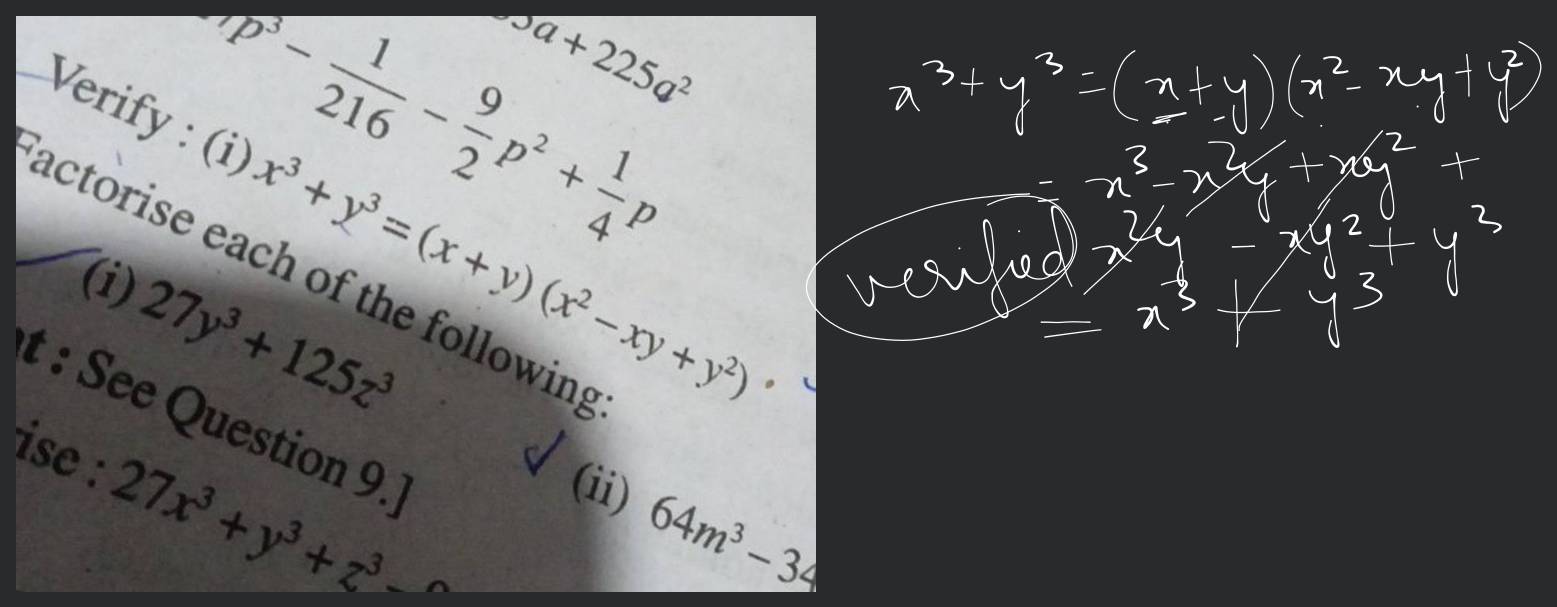 5a + 225a²
7p³ − 1/216 − 9/2 p² + 1/4 p
Verify : (i) x³ + y³ = (x + y) (x² − xy + y²)
Factorise each of the following:
(i) 27y³ + 125z³
(ii) 64m³ − 34
nt : See Question 9.]
rise : 27x³ + y³ + z³ − 9
x³ + y³ = (x + y) (x² − xy + y²)
= x³ − x²y + xy² +
x²y − xy² + y³
= x³ + y³
verified